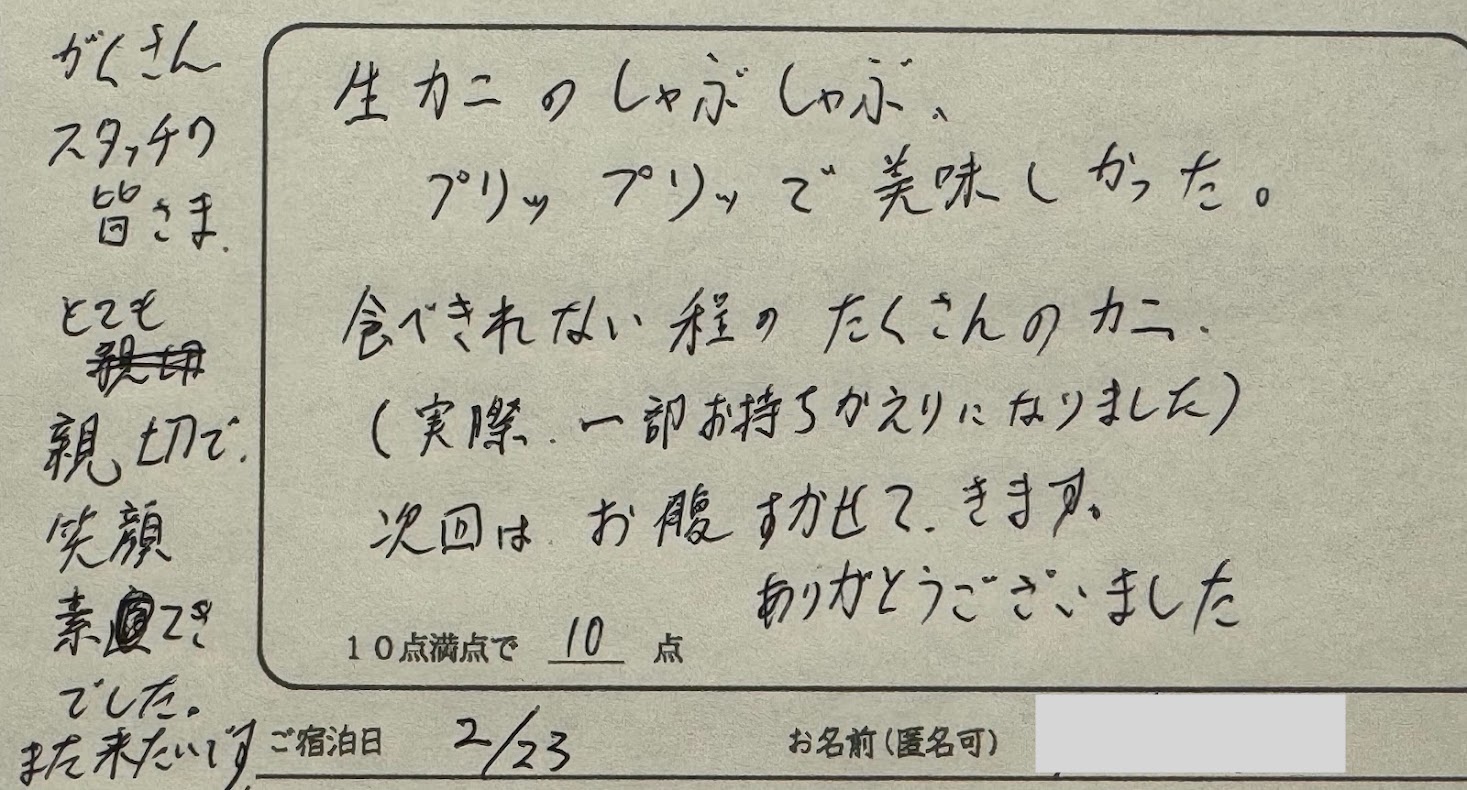 生カニのしゃぶしゃぶ、
プリップリッで美味しかった。
食べきれない程のたくさんのカニ、
(実際、一部お持ちかえりになりました)
次回は、お腹すかせて、きます。
ありがとうございました
10点満点で 10 点
がくさん
スタッフの
皆さま、
とても
親切で、
笑顔
素てき
でした。
また来たいです
ご宿泊日 2/23 お名前(匿名可)